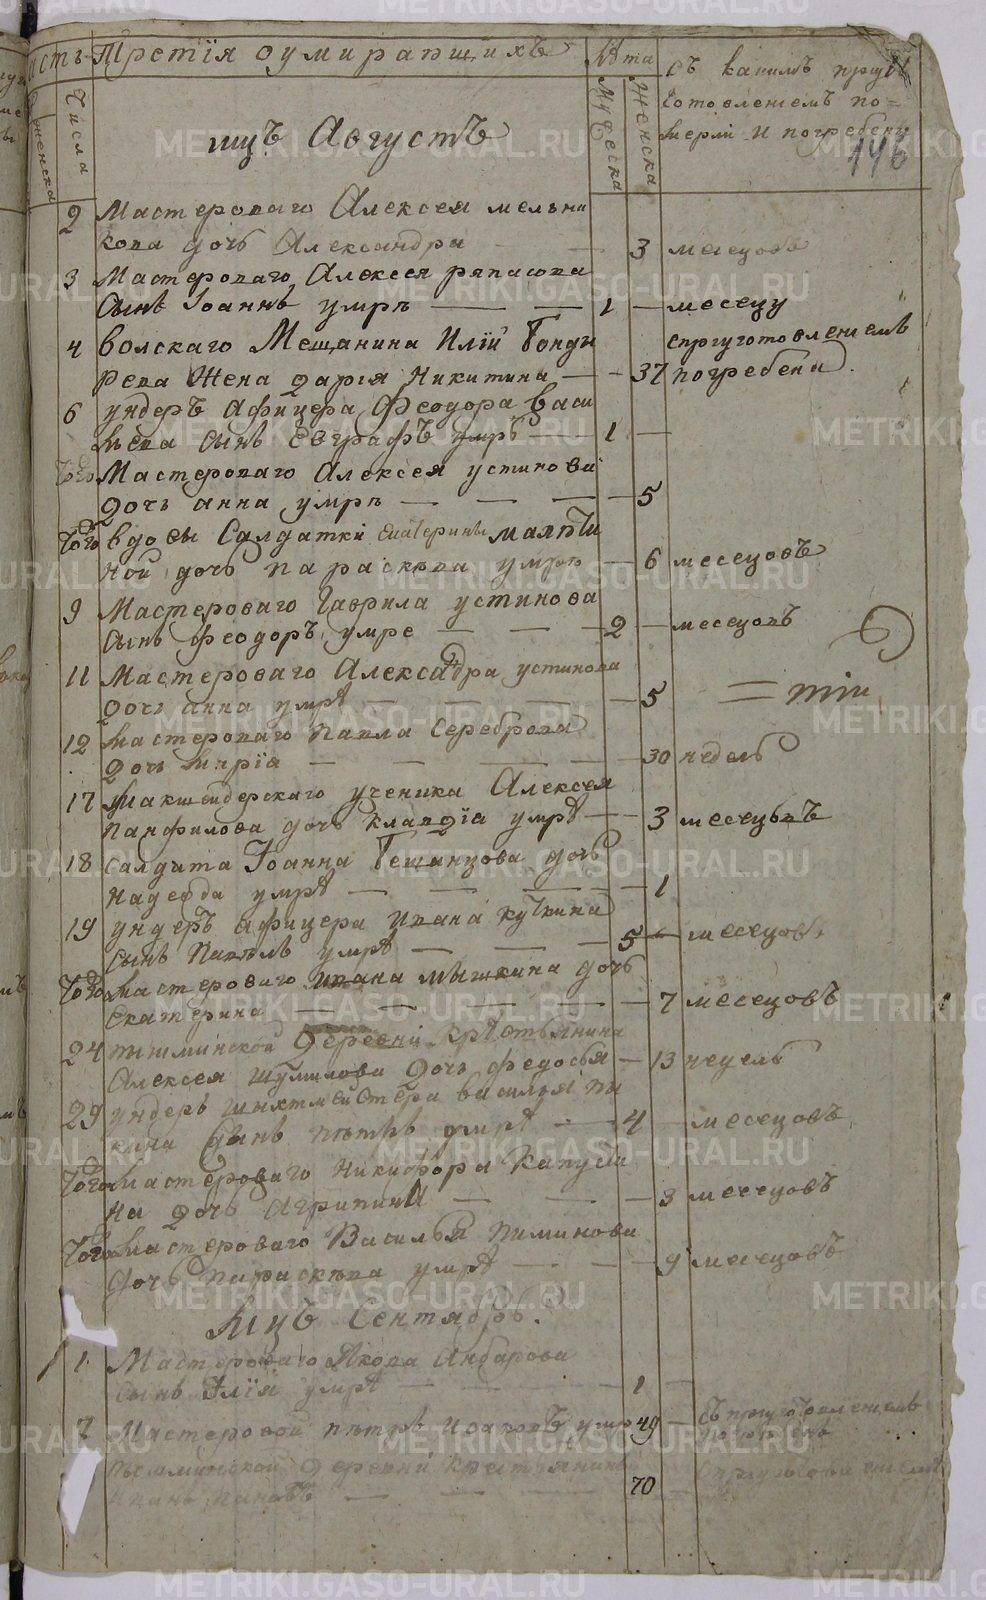 асть Третїя оумирапшихъ
Лѣта
съ какимъ пригу
готовленїемъ по=
мерли и погребены
146
Числа
женска
Мужеска
Женска
мцъ Августъ
2 Мастероваго Алексея мельни
кова дочь Александра — — 3 месецовъ
3 Мастероваго Алексея ряпасова
Сынъ Іоаннъ умръ — — 1 — месецу
4 волскаго Мещанина Илїи Бонды
рева Жена дарїя Никитина — — 37 спригуготовленїемъ погребена.
6 ундеръ афицера Феодора Васи
льева Сынъ Евграфъ умръ — 1 —
того Мастероваго Алексея устинова
дочь анна умрѣ — — — 5
того вдовы Салдатки екатерины
ной дочь параскева умрѣ — 6 месецовъ
9 Мастероваго Гаврила устинова
Сынъ Феодоръ умре — — 2 — месецовъ
11 Мастероваго Александра устинова
дочь анна умрѣ — — — 5
12 Мастероваго павла Сереброва
дочь Марїа — — — 30 недель
17 Маркшейдерскаго ученика Алексея
панфилова дочь клавдїа умрѣ — 3 месецовъ
18 салдата Іоанна дочь
надежда умрѣ — — — 1
19 ундеръ афицера ивана кучкина
сынъ павелъ умрѣ — — 5 — месецовъ
того Мастероваго ивана мышкина дочь
екатерина — — — 7 месецовъ
24 пышминской деревни крѣстьянина
Алексея Шумилова дочь федосья — 13 недель
29 ундеръ шихтмейстера василья пи
кина Сынъ пѣтръ умрѣ — 4 месецовъ
того Мастероваго Никифора капусти
на дочь Агрипина — — 3 месецовъ
того Мастероваго Василья пиминова
дочь параскева умрѣ — — 9 месецовъ
Мцъ Сентябрь.
1 Мастероваго Якова Анбарова
сынъ Илїя умрѣ — — 1 —
7 Мастеровой пѣтръ умръ 49 — съ пригуготовленїемъ
пышминской деревни крестьянинъ
иванъ пановъ — — — 70
METRIKI.GASO-URAL.RU